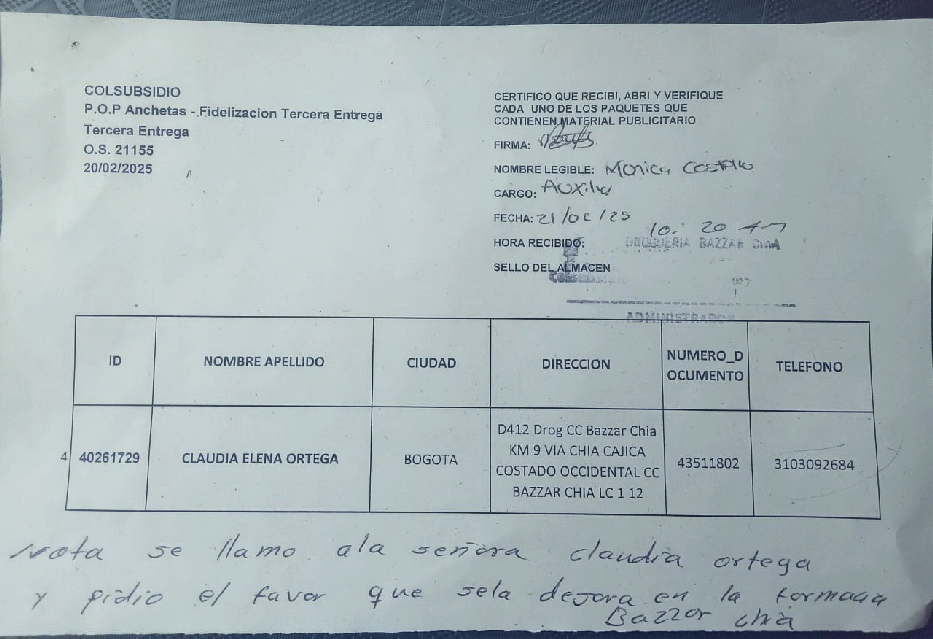 COLSUBSIDIO
P.O.P Anchetas - Fidelizacion Tercera Entrega
Tercera Entrega
O.S. 21155
20/02/2025
CERTIFICO QUE RECIBI, ABRI Y VERIFIQUE
CADA UNO DE LOS PAQUETES QUE
CONTIENEN MATERIAL PUBLICITARIO
FIRMA:
NOMBRE LEGIBLE: Monica
CARGO: Auxilia
FECHA: 21/02/25
HORA RECIBIDO: 10: 20 am
DROGUERIA BAZZAR CHIA
SELLO DEL ALMACEN
ADMINISTRADOR
ID NOMBRE APELLIDO CIUDAD DIRECCION NUMERO_D TELEFONO
OCUMENTO
D412 Drog CC Bazzar Chia
4 40261729 CLAUDIA ELENA ORTEGA BOGOTA KM 9 VIA CHIA CAJICA 43511802 3103092684
COSTADO OCCIDENTAL CC
BAZZAR CHIA LC 1 12
Nota se llamo ala señora claudia ortega
y pidio el favor que sela dejora en la formacia
Bazzar chia